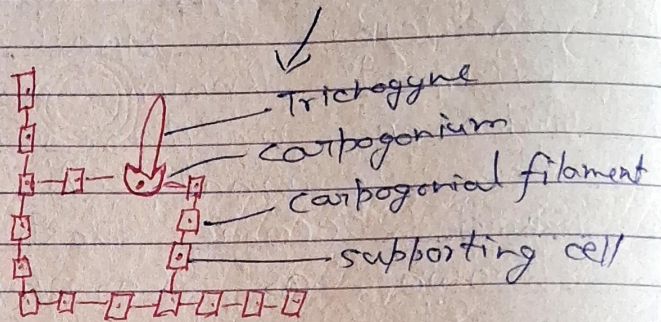 Trichogyne
carpogonium
carpogonial filament
supporting cell